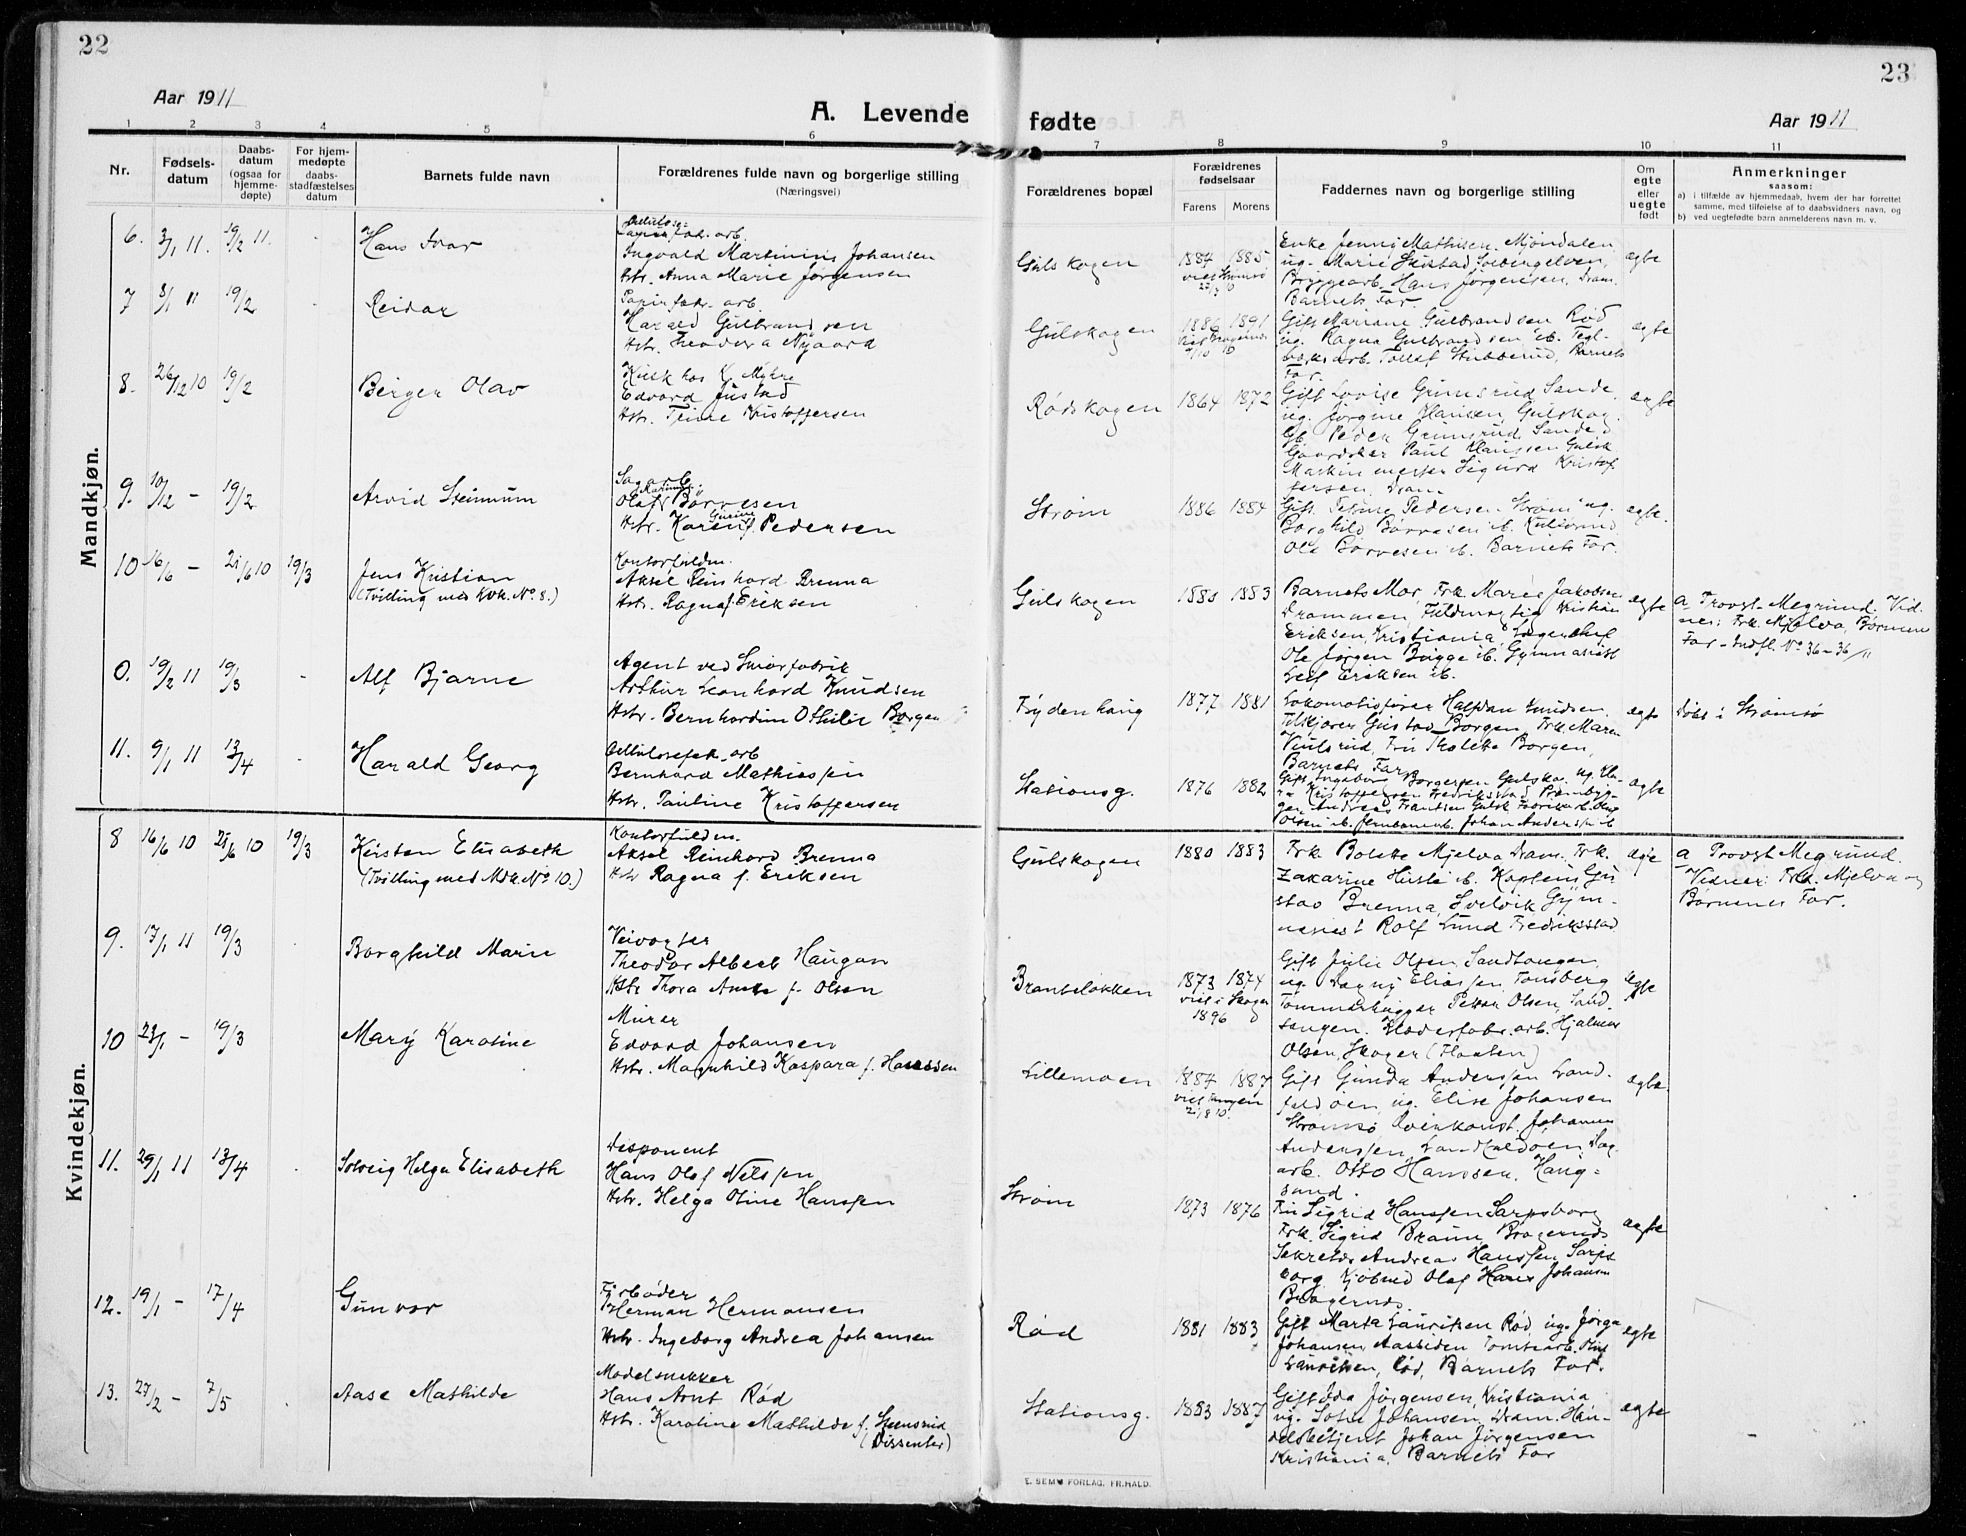 22
23
Aar 1911
A. Levende fødte
Aar 1911
1 2 3 4 5 6 7 8 9 10 11
Nr.
Fødsels-
datum
Daabs-
datum
(ogsaa for
hjemme-
døpte)
For hjem-
medøpte
daabs-
stadfæstelses
datum
Barnets fulde navn
Forældrenes fulde navn og borgerlige stilling
(Næringsvei)
Forældrenes bopæl
Forældrenes
fødselsaar
Farens Morens
Faddernes navn og borgerlige stilling
Om
egte
eller
uegte
født
Anmerkninger
saasom:
a) i tilfælde av hjemmedaab, hvem der har forrettet
samme, med tilføielse af to daabsvidners navn, og
b) ved uegtefødte barn anmelderens navn m. v.
Mandkjøn.
6. 3/1 11. 19/2 11.
Hans Ivar
Ingvald Martinius Johansen
Hstr. Anna Marie Jørgensen
Gulskogen
1884 1885
Enke Jenny Mathisen, Mjøndalen
Bryggearb. Hans Jørgensen, Dram.
Barnets Far.
egte
7 8/1 11 19/2
Reidar
Papirfabr. arb.
Harald Gulbrandsen
Hstr. Theodora Nygaard
Gulskogen
1886 1891
Gift Mariane Gulbrandsen Rød
ug. Ragna Gulbrandsen ib. Tegl-
Barnets
Far.
egte
8. 26/12 10 19/2
Birger Olav
Kusk hos K. Myhre
Edvard Justad
Hstr. Trine Kristoffersen
Rødskogen
1864 1872
Gift Lovise Grimsrud Sande,
ug. Jørgine Hansen, Gulskog.
Peder Grimsrud, Sande,
Paul Klaussen Gulsk
Maskinmester Sigurd Kristof-
fersen, Dram
egte
9. 10/12 - 19/2
Arvid Steinum
Sagarb.
Olaf Børresen
Hstr. Karen f. Pedersen
Strøm
1886 1884
Pedersen. Strøm ug.
Borghild Børresen ib.
Ole Børresen ib. Barnets Far.
egte.
10 16/6 - 25/6 10 19/3
Jens Kristian
(Tvilling med Kvk. No. 8.)
Kontorfuldm.
Aksel Reinhard Brenna
Hstr. Ragna f. Eriksen
Gulskogen
1880 1883
Barnets Mor, Frk. Marie Jakobsen
Drammen, Fuldmægtig Kristian
Eriksen, Kristiania, Lagerchef
Ole Jørgen Bugge ib. Gymnasiast
Leif Eriksen ib.
egte
a Provst Megrund. Vid-
ner: Frk. Mjelva, Børnenes
Far - Indfl. No 36-36/11
0. 19/2 11 19/3
Alf Bjarne
Agent ved Smørfabrik
Arthur Leonhard Knudsen
Hstr. Bernhardine Othilie Borgen
Frydenhaug
1877 1881
Lokomotivfører Halfdan Knudsen,
Tilskjærer Gustav Borgen, Frk. Maren
Borgen,
Barnets Far.
egte
Døbt i Strømsø
11. 9/1 11 13/4
Harald Georg
Cellulosefabr. arb
Bernhard Mathiassen
Hstr. Pauline Kristoffersen
Stationsg.
1876 1882
Gift Ingeborg Borgersen, Gulsko. ug. Kla-
ra Kristoffersen Fredriksstad
Andreas Frantsen Gulsk
Olsen ib. Jernbanearb. Johan Anders ib
egte
Kvindekjøn.
8 16/6 10 25/6 10 19/3
Kirsten Elisabeth
(Tvilling med Mdk. No 10.)
Kontorfuldm.
Aksel Reinhard Brenna
Hstr Ragna f. Eriksen
Gulskogen
1880 1883
Frk. Bolette Mjelva Dram. Frk.
Zakarine Huslé ib. Kaptein Gu-
stav Brenna, Svelvik Gym-
nasiast Rolf Lund Fredriksstad
egte
a Provst Megrund.
Vidner: Frk. Mjelva og
Børnenes Far.
9. 17/1 11 19/3
Borghild Marie
Veivogter
Theodor Albert Haugan
Hstr Thora f. Olsen
Branteløkken
1873 1874
viet i Skoger
1896
Gift Julie Olsen, Sandtangen,
ug. Dagny Eliassen, Tønsberg
Tømmerhugger Petter Olsen, Sand-
tangen. Klædesfabr. arb. Hjalmar
Olsen, Skoger (Flaaten)
egte
10 23/1 - 19/3
Mary Karoline
Murer
Edvard Johansen
Hstr. Magnhild Kaspara f. Hanssen
Lillemoen
1884 1887
Gift Gunda Anderssen Land-
faldøen, ug. Elise Johansen
Strømsø Johannes
Anderssen, Landfaldøen, Sag-
arb. Otto Hanssen, Haug-
sund.
egte
11. 29/1 11 13/4
Solveig Helga Elisabeth
Disponent
Hans Olaf Nilssen
Hstr. Helga Oline Hanssen
Strøm
1873 1876
Fru Sigrid Hanssen Sarpsborg
Frk. Sigrid Braun, Bragernes
Sekretær Andreas Hanssen, Sarps-
borg, Kjøbmd Olaf Hans Johansen
Bragernes
egte
12. 19/1 - 17/4
Gunvor
Fyrbøder
Herman Hermansen
Hstr. Ingeborg Andrea Johansen
Rød
1881 1883
Gift Marta Lauritsen Rød, ug. Jørga
Johansen, Aassiden, Tomtearb.
Lauritsen, Rød, Barnets Far.
egte
13. 27/2 - 7/5
Aase Mathilde
Modelsnekker
Hans Arnt Rød
Hstr. Karoline Mathilde f. Steensrud
(Dissenter)
Stationsg.
1883 1887
Gift Ida Jørgensen, Kristiania
ug. Sofie Johansen, Dram. Han-
delsbetjent Johan Jørgensen
Kristiania, Barnets Far
egte
E. SEMS FORLAG, FR.HALD.